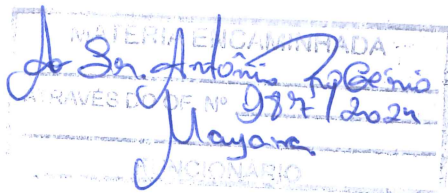 MATÉRIA ENCAMINHADA
Ao Sr. Antônio Rogério
ATRAVÉS DO OF. Nº 987/2024
Mayara
FUNCIONÁRIO